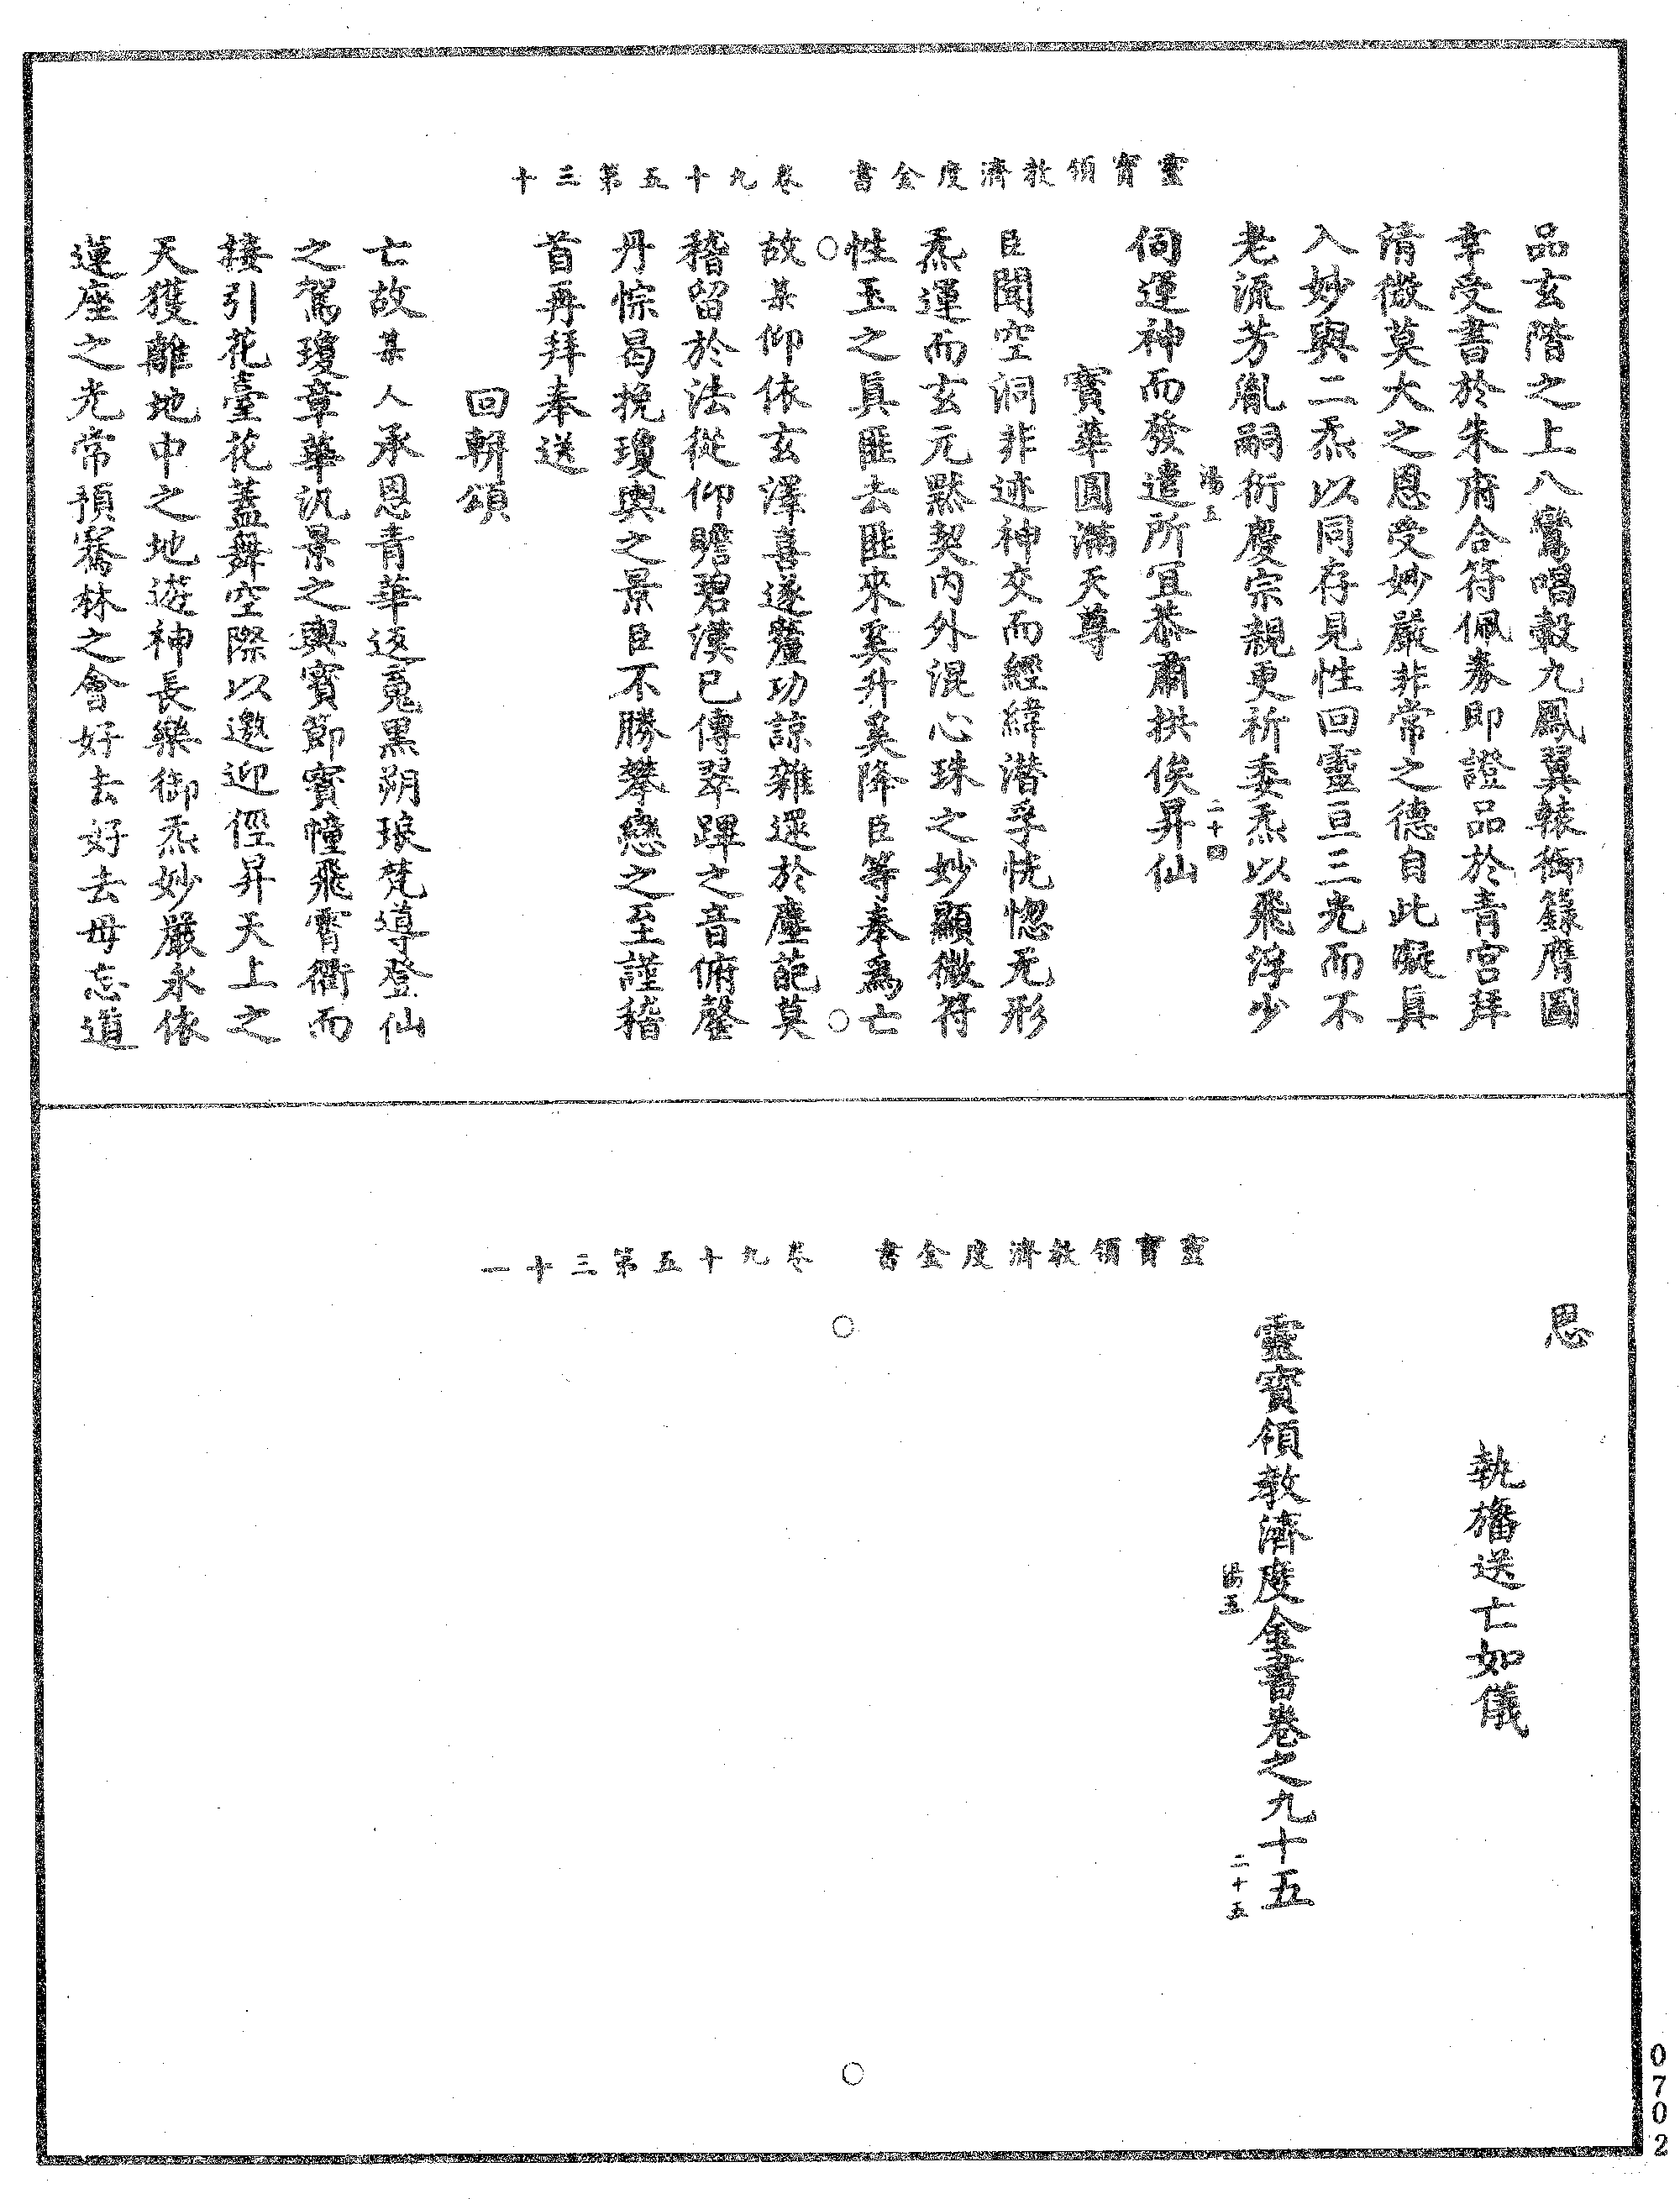 靈寶領教濟度金書　卷九十五第三十
品玄階之上八鸞唱轂九鳳翼轅御籙膺圖
幸受書於朱府合符佩券即證品於青宮拜
清微莫大之恩受妙嚴非常之德自此凝真
入妙與二炁以同存見性回靈亘三光而不
老流芳胤嗣衍慶宗親更祈委炁以飛浮少
伺運神而發遣所宜恭肅拱俟昇仙
二十四
寶華圓滿天尊
臣聞空洞非迹神交而經緯潛孚恍惚无形
炁運而玄元默契內外混心珠之妙顯微符
性玉之真匪去匪來奚升奚降臣等奉為亡
故某仰依玄澤喜遂蘽功諒難還於塵葩莫
稽留於法從仰瞻碧漢已傳翠蹕之音俯罄
丹悰曷挽瓊輿之景臣不勝攀戀之至謹稽
首再拜奉送
回軿頌
亡故某人承恩青華返魂黑朔琅梵導登仙
之駕瓊章華汎景之輿寶節寶幢飛霄衢而
接引花臺花蓋舞空際以邀迎徑昇天上之
天獲離地中之地遊神長樂御炁妙嚴永依
蓮座之光常預騫林之會好去好去毋忘道
靈寶領教濟度金書　卷九十五第三十一
恩
執旛送亡如儀
靈寶領教濟度金書卷之九十五
二十五
0702